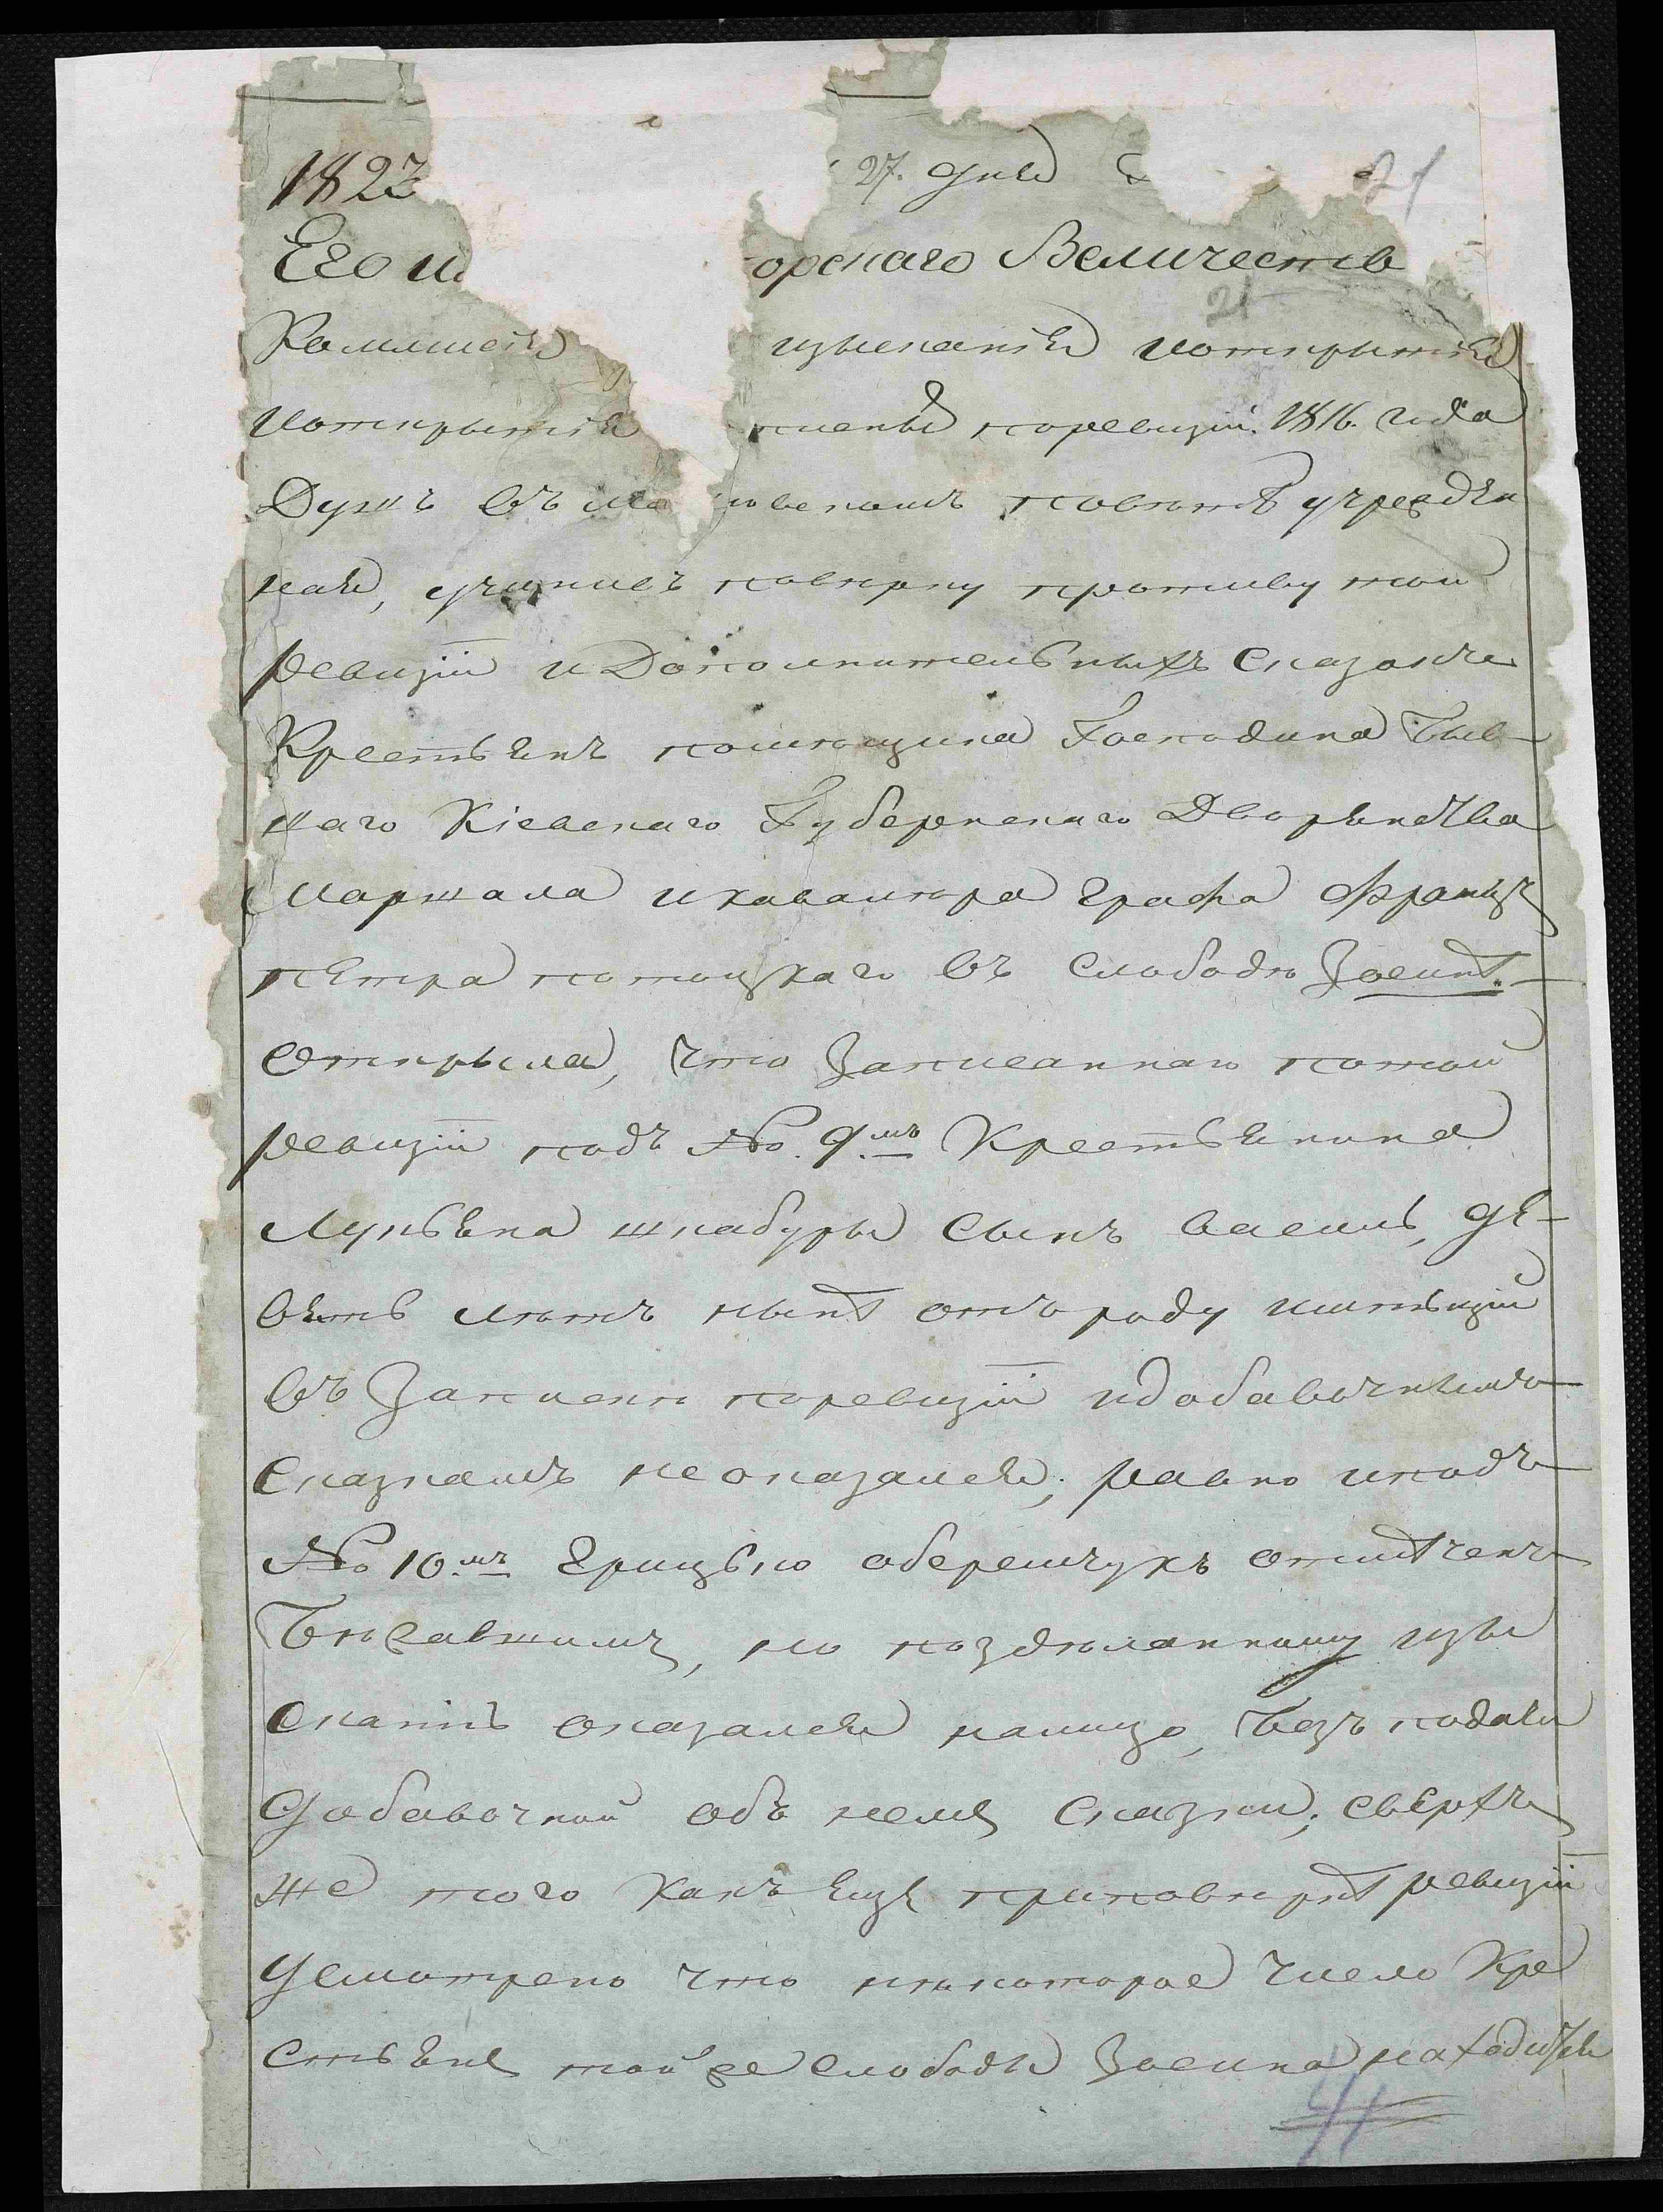 1823 27. дня 21
Его И орскаго Величеств
21
Комисiя изысканiя иоткрытiя
иоткрытiя порсвизiи 1816. года
Душъ въ ма новскомъ повѣтѣ учрежден
ная, учинивъ повѣрку противу той
ревизiи и Дополнительныхъ Сказокъ
Крестьянъ помѣщика Господина Быв-
шаго Кiевскаго Губернскаго Дворянства
Маршала икавалѣра Графа Францъ
пЕтра потоцкаго въ Слободѣ Зосинѣ.
Открыла, что Записаннаго потой
ревизiи подъ No. 9.мъ Крестьянина
Лукьяна шкабуры Сынъ василь, дЕ-
вять лѣтъ нынѣ отъ роду имѣющiй
въ Записки поревизiи идобавочнымъ
Сказкамъ неоказался; равно иподъ
No 10.мъ Грицько оберемчукъ отмѣченъ
Бѣжавшимъ, но поздѣланному изы
Сканiю оказался налицо, Безъ подачи
Добавочной объ немъ Сказки; свЕрхъ
же того какъ Еще приповѣркѣ ревизiи
Усмотрено что нѣкоторое Число Кре
Стьянъ той же Слободы Зосина находится
41